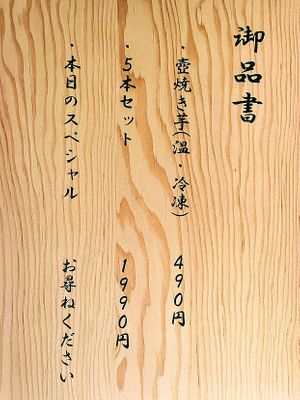 御品書
・壺焼き芋(温・冷凍) 490円
・5本セット 1990円
・本日のスペシャル お尋ねください